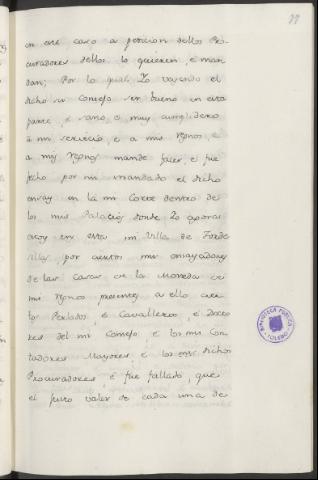 en este caso a peticion dellos Pro-
curadores dellos lo quieren, e man
dan; Por lo qual Yo veyendo el
dicho su Consejo ser bueno en esta
parte, e sano, e muy cumplidero
a mi servicio, e a mis Rejnos, e
a mis Rejnos mande facer, e fue
fecho por mi mandado el dicho
ensay en la mi Corte dentro de
los mis Palacios donde Yo agora
estoy en esta mi Villa de Torde
sillas por ciertos mis ensayadores
de las Casas de la Moneda de
mis Rejnos presentes a ello
los Perlados, e Cavalleros, e Docto
res del mi Consejo e los mis Con
tadores Mayores, e los dichos
Procuradores, e fue fallado, que
el justo valer de cada una de
BIBLIOTECA PUBLICA
TOLEDO